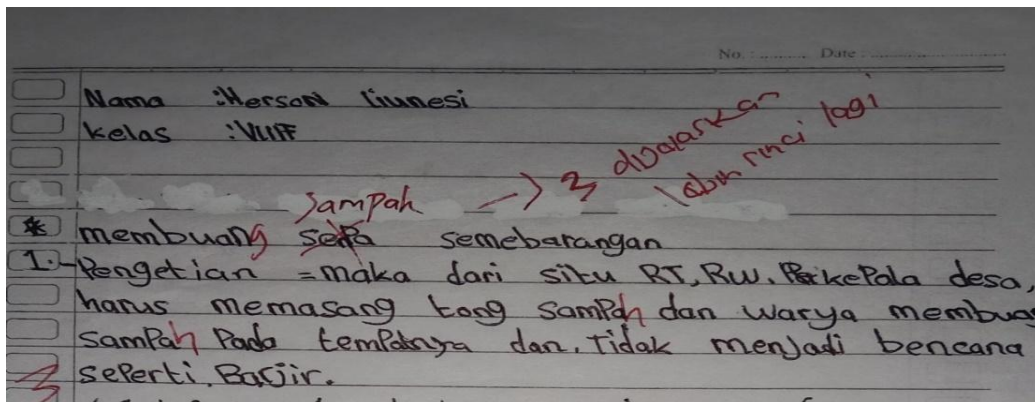 No. : Date :
Nama : Herson Liunesi
Kelas : VIII F
dijelaskan
lebih rinci lagi
Sampah
* membuang sempa semebarangan
1. Pengetian = maka dari situ RT, RW, kePala desa,
harus memasang tong samPah dan warya membua
samPah Pada tempatnya dan, Tidak menjadi bencana
sePerti, Banjir.